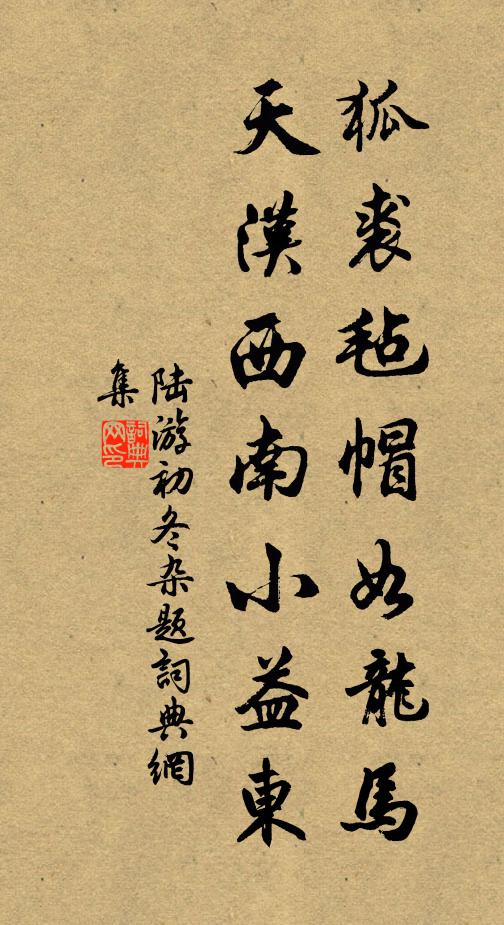 狐裘毡帽如龍馬
天漢西南小益東
陆游初冬杂题詞典網
集
詞典
网印